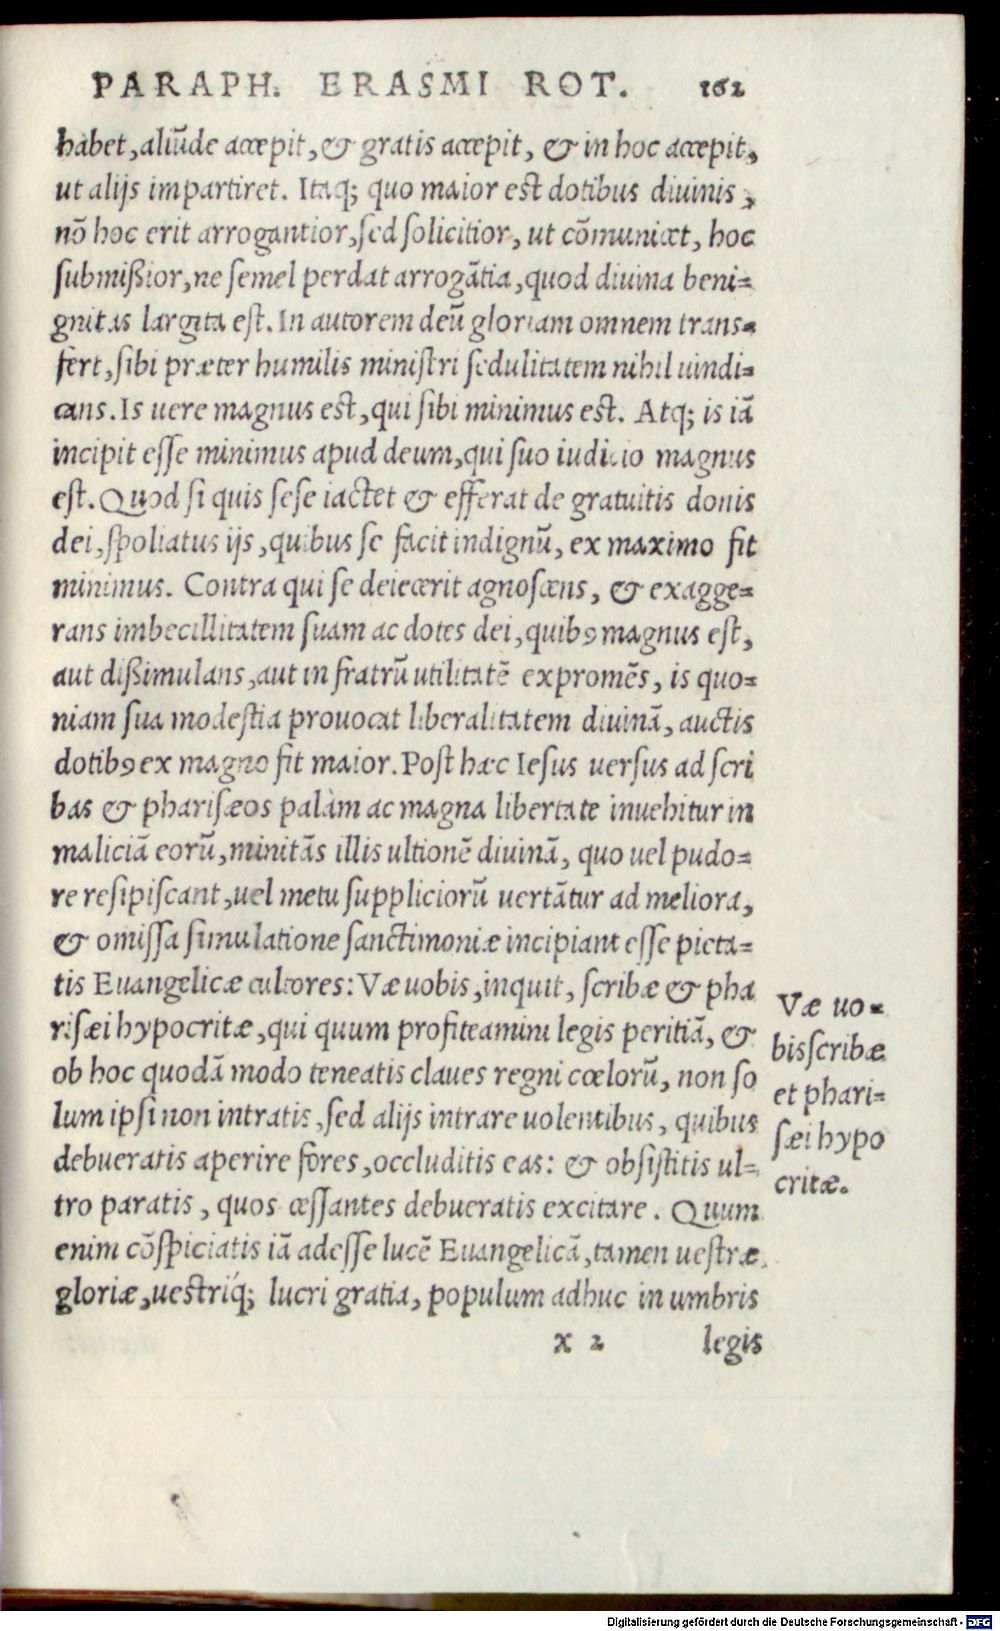 PARAPH. ERASMI ROT. 162
habet, aliũde accepit, & gratis accepit, & in hoc accepit,
ut alijs impartiret. Itaq; quo maior est dotibus diuinis,
nõ hoc erit arrogantior, sed solicitior, ut cõmunicet, hoc
submißior, ne semel perdat arrogãtia, quod diuina beni=
gnitas largita est. In autorem deũ gloriam omnem trans=
fert, sibi præter humilis ministri sedulitatem nihil uindi=
cans. Is uere magnus est, qui sibi minimus est. Atq; is iã
incipit esse minimus apud deum, qui suo iudicio magnus
est. Quod si quis sese iactet & efferat de gratuitis donis
dei, spoliatus ijs, quibus se facit indignũ, ex maximo fit
minimus. Contra qui se deiecerit agnoscens, & exagge=
rans imbecillitatem suam ac dotes dei, quibꝰ magnus est,
aut dißimulans, aut in fratrũ utilitatẽ expromẽs, is quo=
niam sua modestia prouocat liberalitatem diuinã, auctis
dotibꝰ ex magno fit maior. Post hæc Iesus uersus ad scri
bas & pharisæos palàm ac magna libertate inuehitur in
maliciã eorũ, minitãs illis ultionẽ diuinã, quo uel pudo=
re resipiscant, uel metu suppliciorũ uertãtur ad meliora,
& omissa simulatione sanctimoniæ incipiant esse pieta=
tis Euangelicæ cultores: Væ uobis, inquit, scribæ & pha
risæi hypocritæ, qui quum profiteamini legis peritiã, &
ob hoc quodã modo teneatis claues regni cœlorũ, non so
lum ipsi non intratis, sed alijs intrare uolentibus, quibus
debueratis aperire fores, occluditis eas: & obsistitis ul=
tro paratis, quos cessantes debueratis excitare. Quum
enim cõspiciatis iã adesse lucẽ Euangelicã, tamen uestræ
gloriæ, uestriq́; lucri gratia, populum adhuc in umbris
x 2 legis
Væ uo=
bis scribæ
et phari=
sæi hypo
critæ.
Digitalisierung gefördert durch die Deutsche Forschungsgemeinschaft - DFG